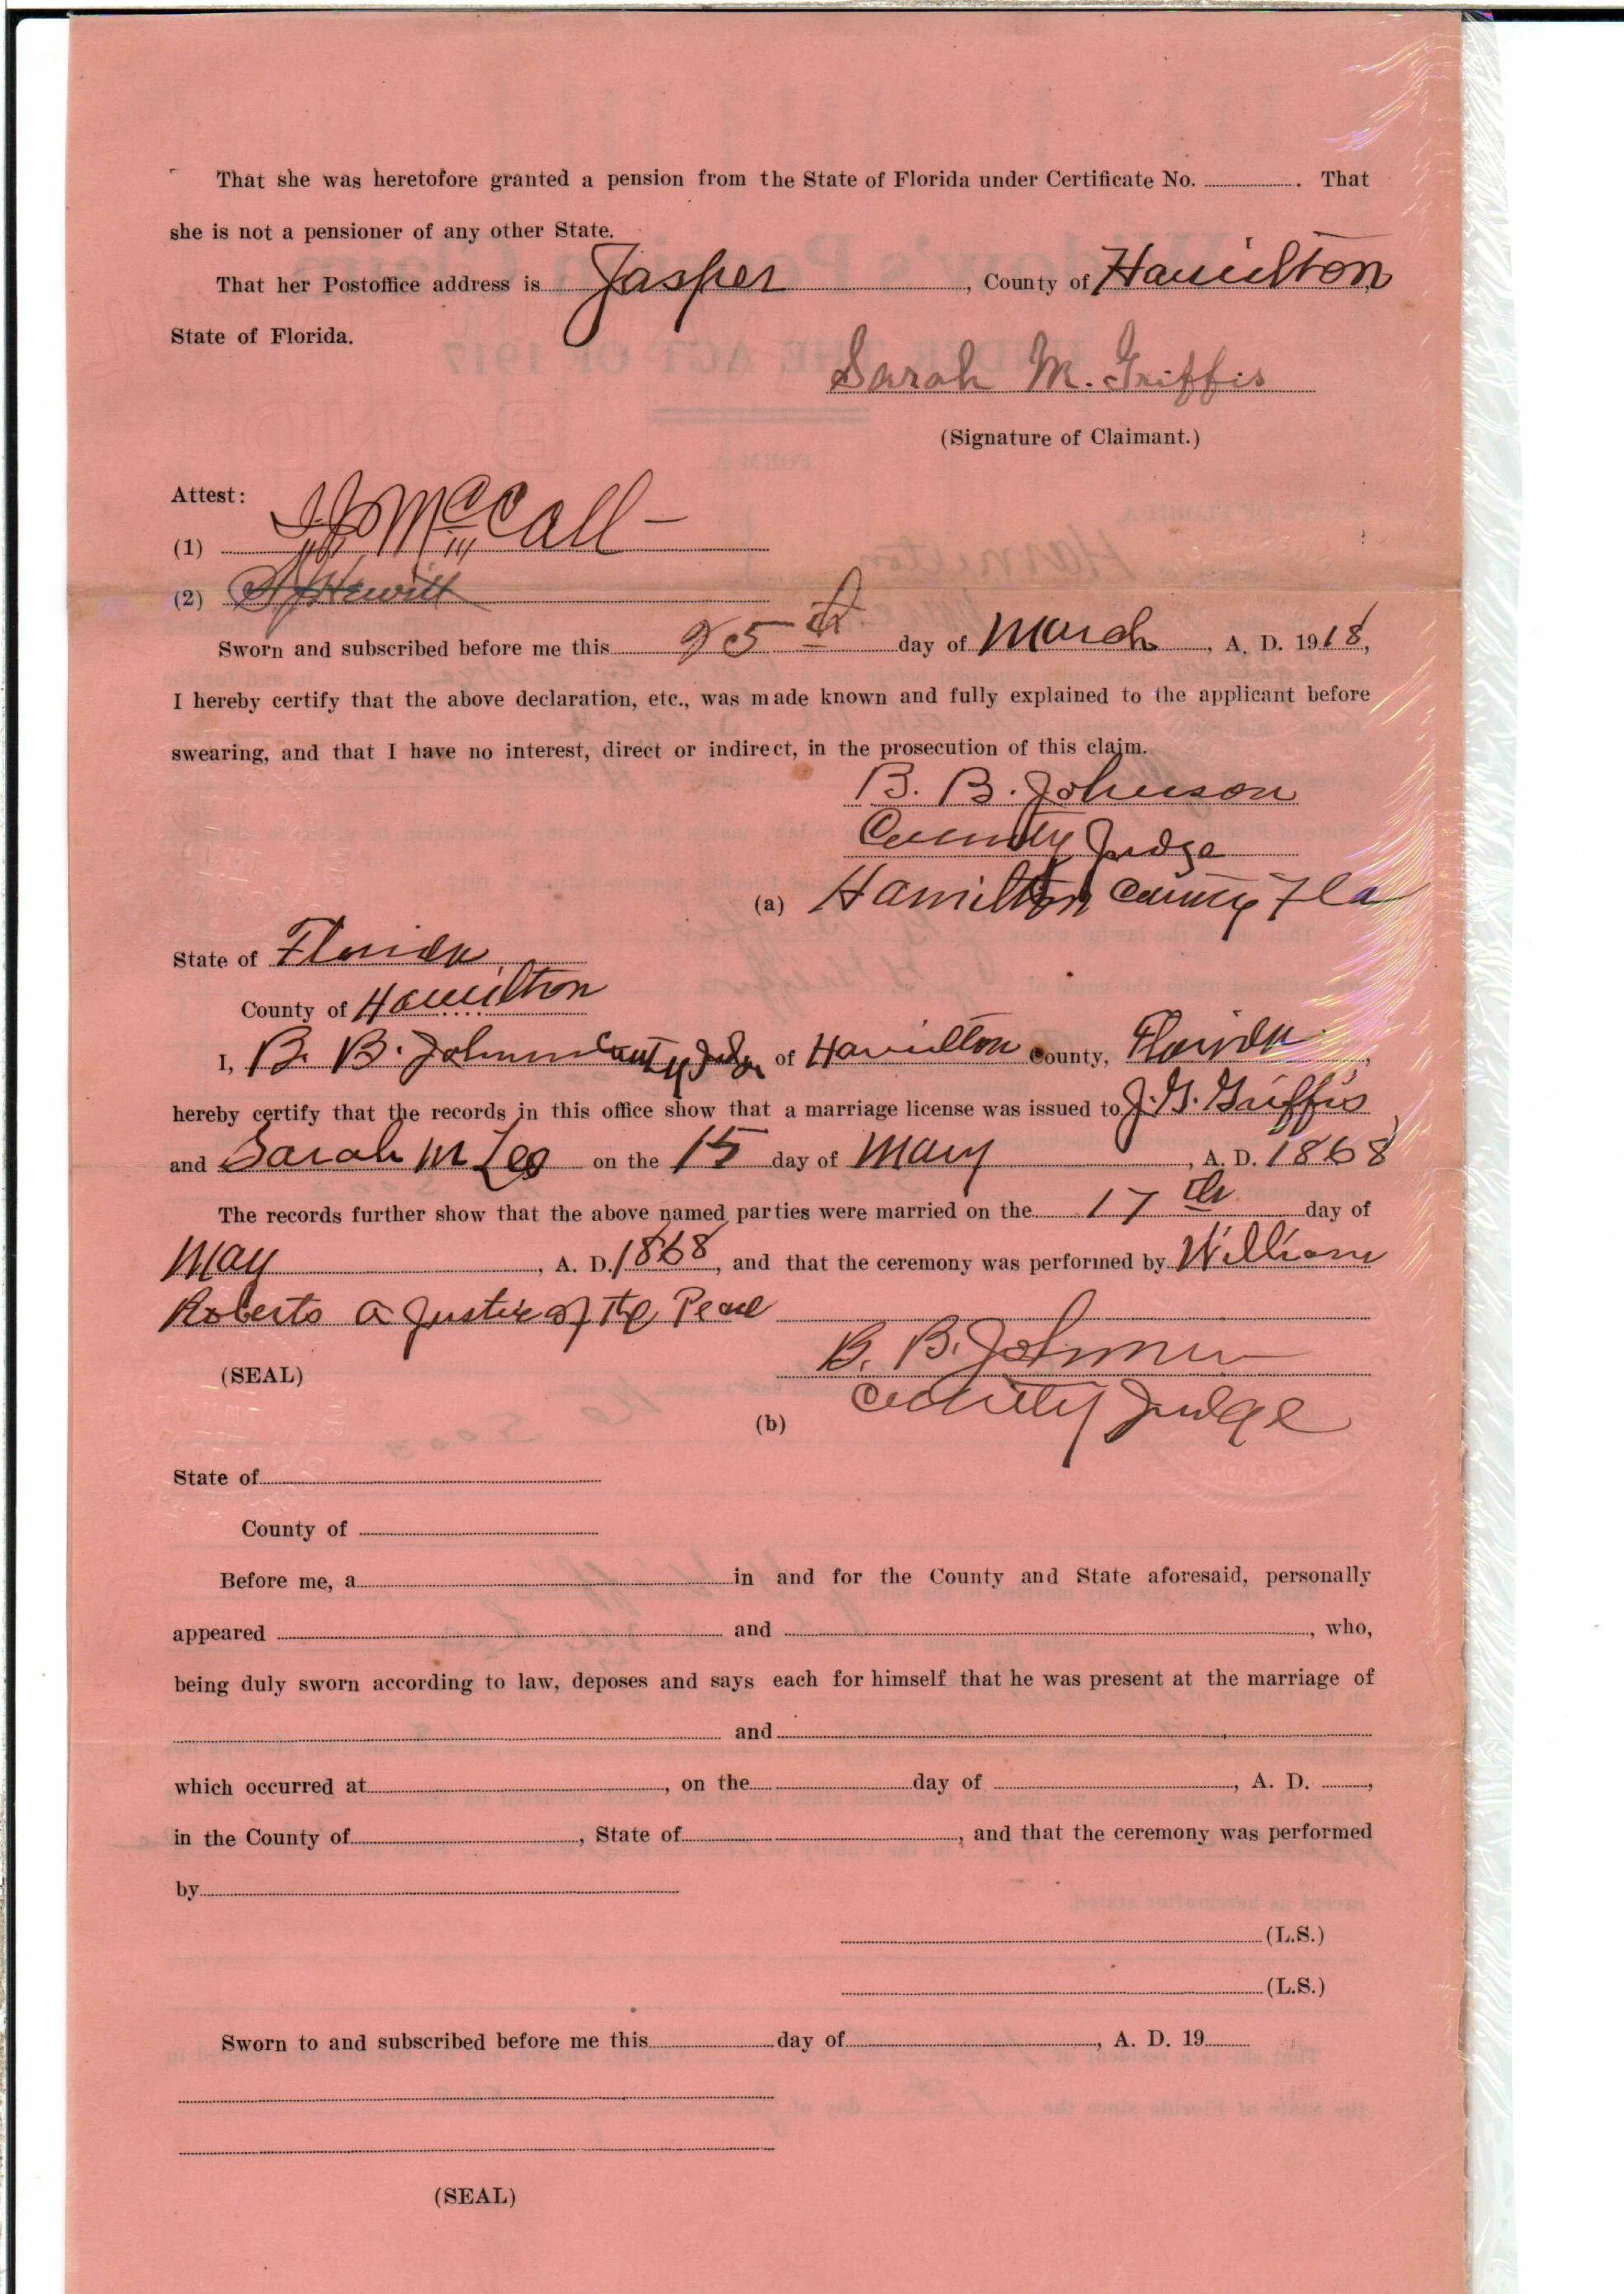 That she was heretofore granted a pension from the State of Florida under Certificate No. ............ . That
she is not a pensioner of any other State.
That her Postoffice address is Jasper, County of Hamilton
State of Florida.
Sarah M. Griffis
(Signature of Claimant.)
Attest:
(1) McCall
(2) Hewitt
Sworn and subscribed before me this 25th day of March, A. D. 1918,
I hereby certify that the above declaration, etc., was made known and fully explained to the applicant before
swearing, and that I have no interest, direct or indirect, in the prosecution of this claim.
B. B. Johnson
County Judge
(a) Hamilton County Fla
State of Florida
County of Hamilton
I, B. B. Johnson County Judge of Hamilton County, Florida,
hereby certify that the records in this office show that a marriage license was issued to J. G. Griffis
and Sarah M Lee on the 15 day of May, A. D. 1868
The records further show that the above named parties were married on the 17th day of
May, A. D. 1868, and that the ceremony was performed by William
Roberts a Justice of the Peace
(SEAL)
B. B. Johnson
(b) County Judge
State of
County of
Before me, a in and for the County and State aforesaid, personally
appeared and , who,
being duly sworn according to law, deposes and says each for himself that he was present at the marriage of
and
which occurred at , on the day of , A. D. ,
in the County of , State of , and that the ceremony was performed
by
(L.S.)
(L.S.)
Sworn to and subscribed before me this day of , A. D. 19
(SEAL)